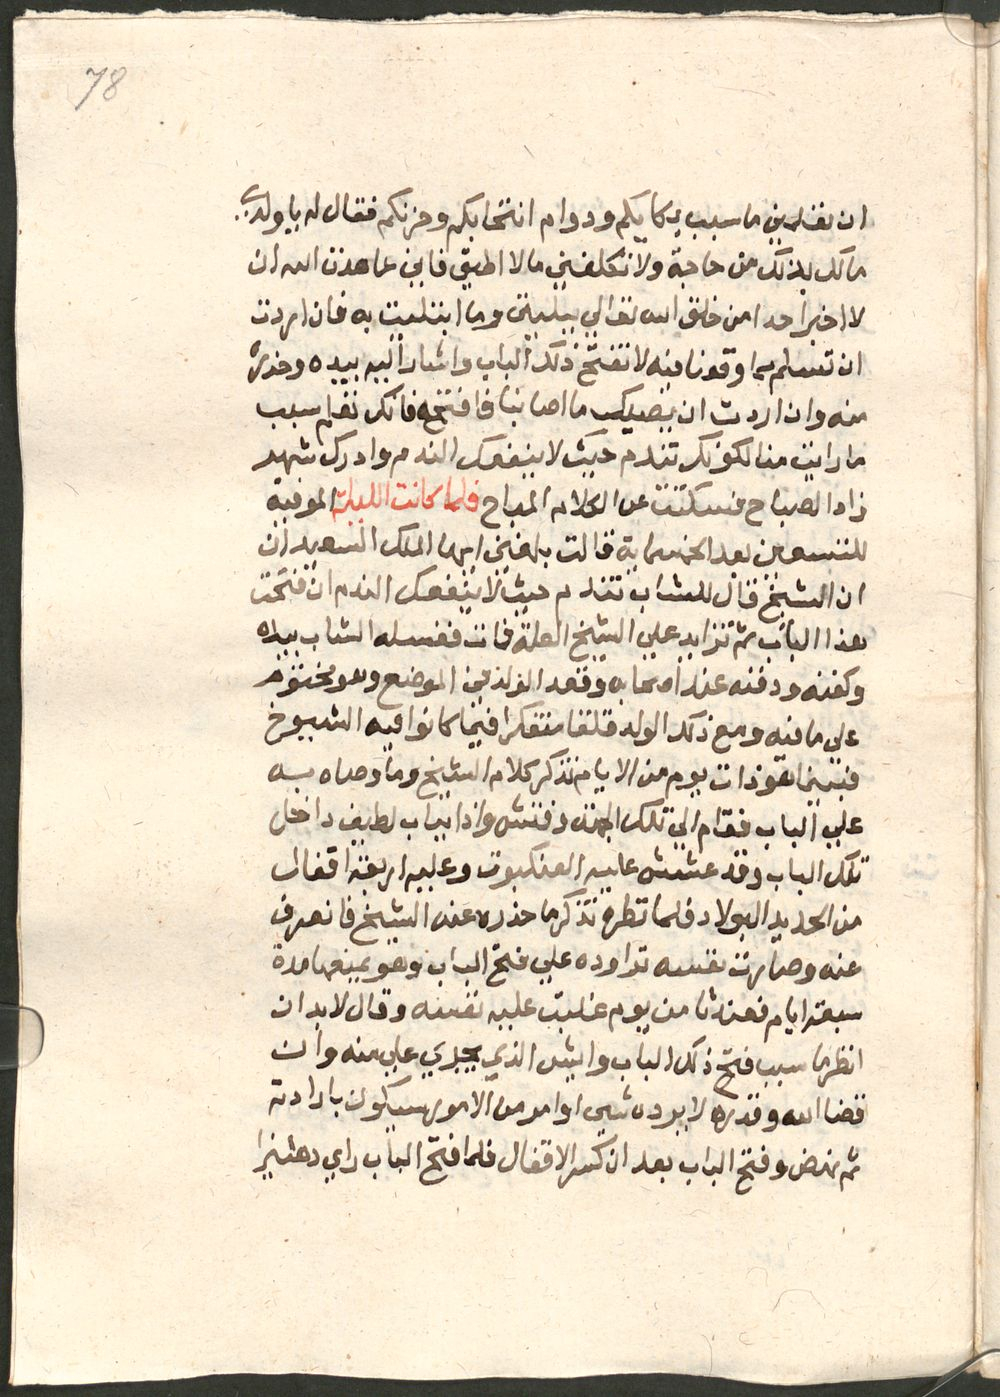 78
ان تعلمني ما سبب بكايكم ودوام انتحابكم وحزنكم فقال له يا ولدي
مالك بذلك من حاجة ولا تكلفني مالا اطيق فاني عاهدت الله ان
لا اخبر احدا من خلق الله تعالي ببليتي وما ابتليت به فان اردت
ان تسلم مما وقعنا فيه لا تفتح ذلك الباب واشار اليه بيده وحذره
منه وان اردت ان يصيبك ما اصابنا فافتحه فانك تعلم سبب
ما رايت منا لكونك تندم حيث لا ينفعك الندم وادرك شهر
زاد الصباح فسكتت عن الكلام المباح فلما كانت الليلة الموفية
للتسعين بعد الخمسماية قالت بلغني ايها الملك السعيد ان
ان الشيخ قال للشاب تندم حيث لا ينفعك الندم ان فتحت
هذا الباب ثم تزايد علي الشيخ العلة فمات فغسله الشاب بيده
وكفنه ودفنه عند اصحابه وقعد الولد في الموضع وهو مختوم
علي ما فيه ومع ذلك الولد قلقا متفكرا فيما كانوا فيه الشيوخ
فبينما هو ذات يوم من الايام تذكر كلام الشيخ وما وصاه به
علي الباب فقام الي تلك الجهة وفتش واذا بباب لطيف داخل
تلك الباب وقد عشش عليه العنكبوت وعليه اربعة اقفال
من الحديد البولاد فلما نظره تذكر ما حذره عنه الشيخ فانصرف
عنه وصارت نفسه تراوده علي فتح الباب وهو يمنعها مدة
سبعة ايام فعند ثامن يوم غلبت عليه نفسه وقال لا بد ان
انظر ما سبب فتح ذلك الباب وايش الذي يجري علي منه وان
قضا الله وقدره لا يرده شي اوامر من الامور سيكون بارادته
ثم نهض وفتح الباب بعد ان كسر الاقفال فلما فتح الباب راي دهليزا